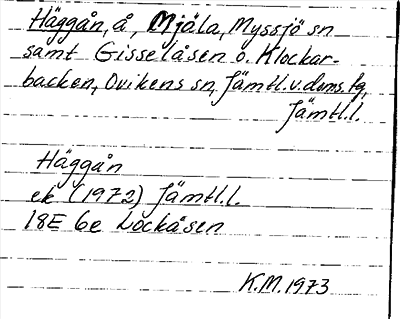 Häggån, å, Mjäla, Myssjö sn
samt Gisselåsen o. Klockar-
backen, Ovikens sn, Jämtl.v.doms.lg,
Jämtl.l.
Häggån
ek (1972) Jämtl.l.
18E 6e Lockåsen
K.M. 1973